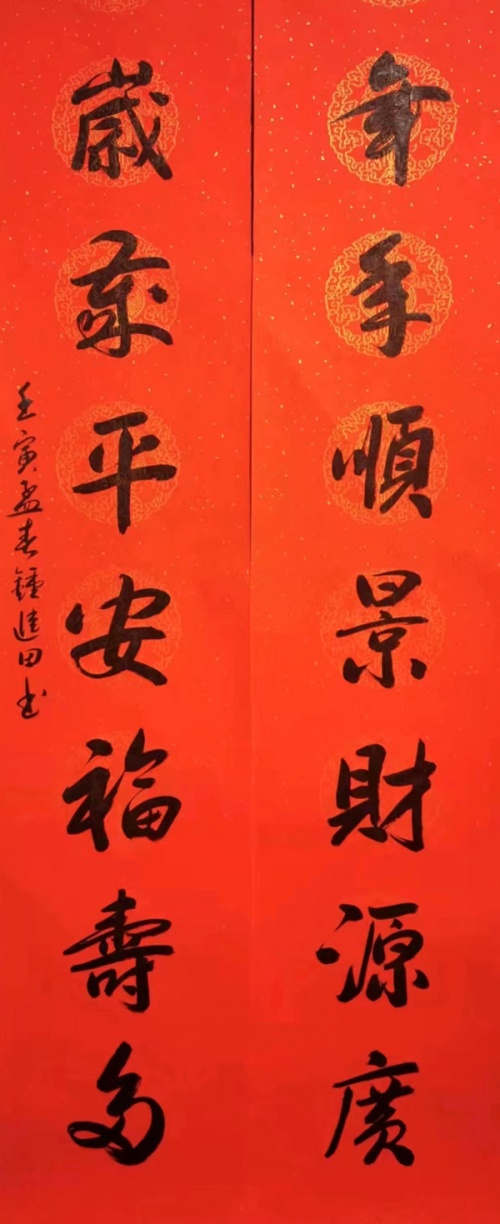 年年順景財源廣
歲歲平安福壽多
壬寅孟春鍾進田書